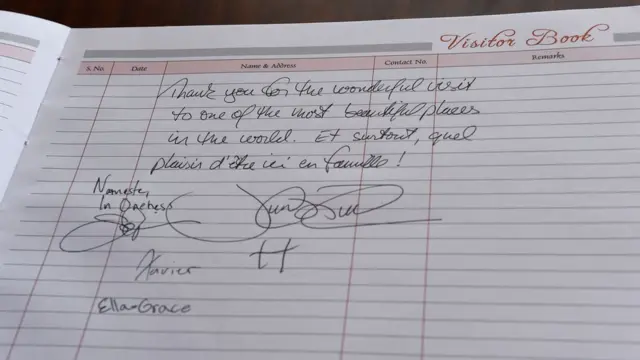 Visitor Book
S. No. Date Name & Address Contact No. Remarks
Thank you for the wonderful visit
to one of the most beautiful places
in the world. Et surtout, quel
plaisir d'être ici en famille!
Namaste,
In
Xavier
H
Ella-Grace